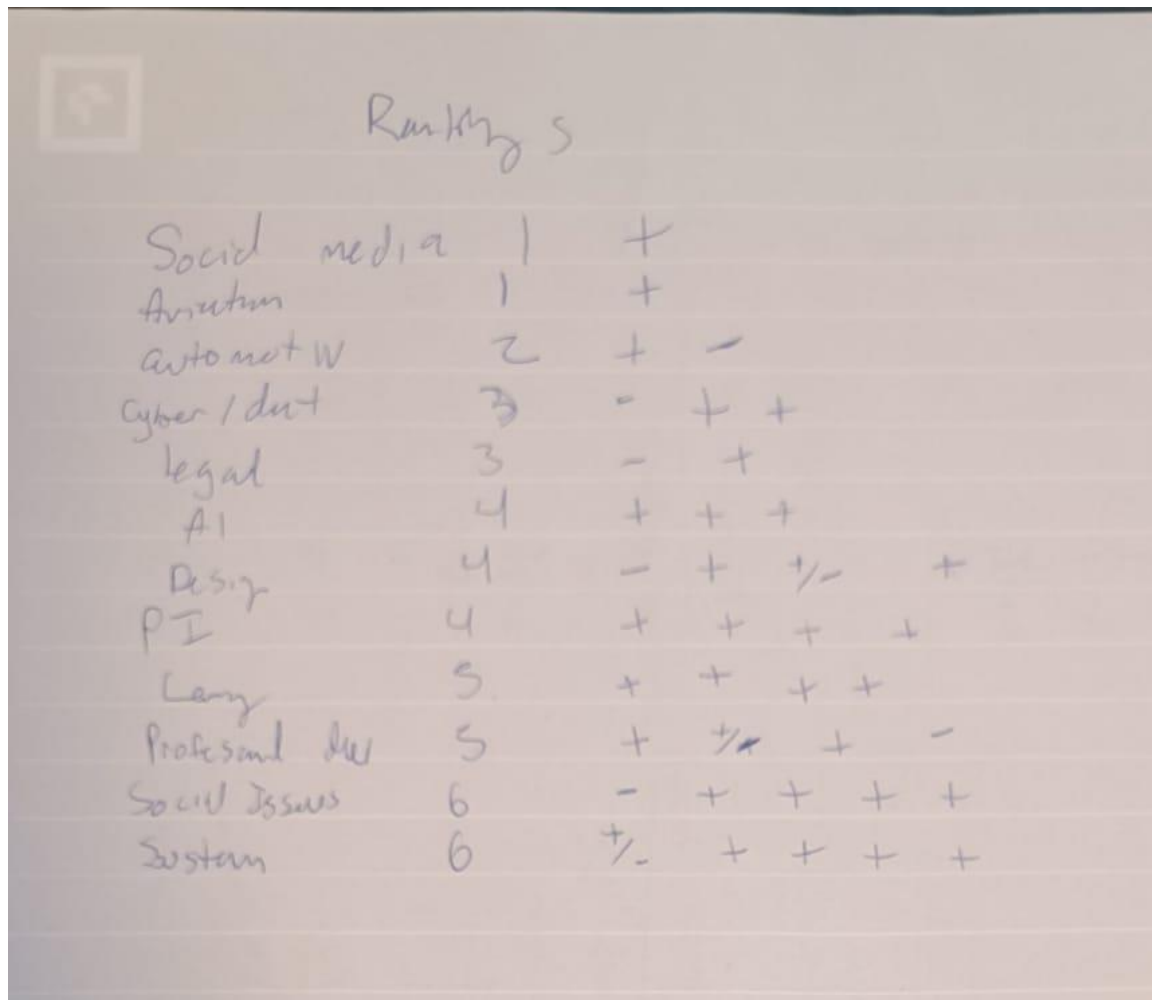 Rankings
Social media 1 +
Aviation 1 +
automotiv 2 + -
Cyber / dat 3 - + +
legal 3 - +
AI 4 + + +
Desig 4 - + +/- +
PI 4 + + + +
5 + + + +
Profesional dev 5 + +/- + -
Social Issues 6 - + + + +
Sustain 6 +/- + + + +